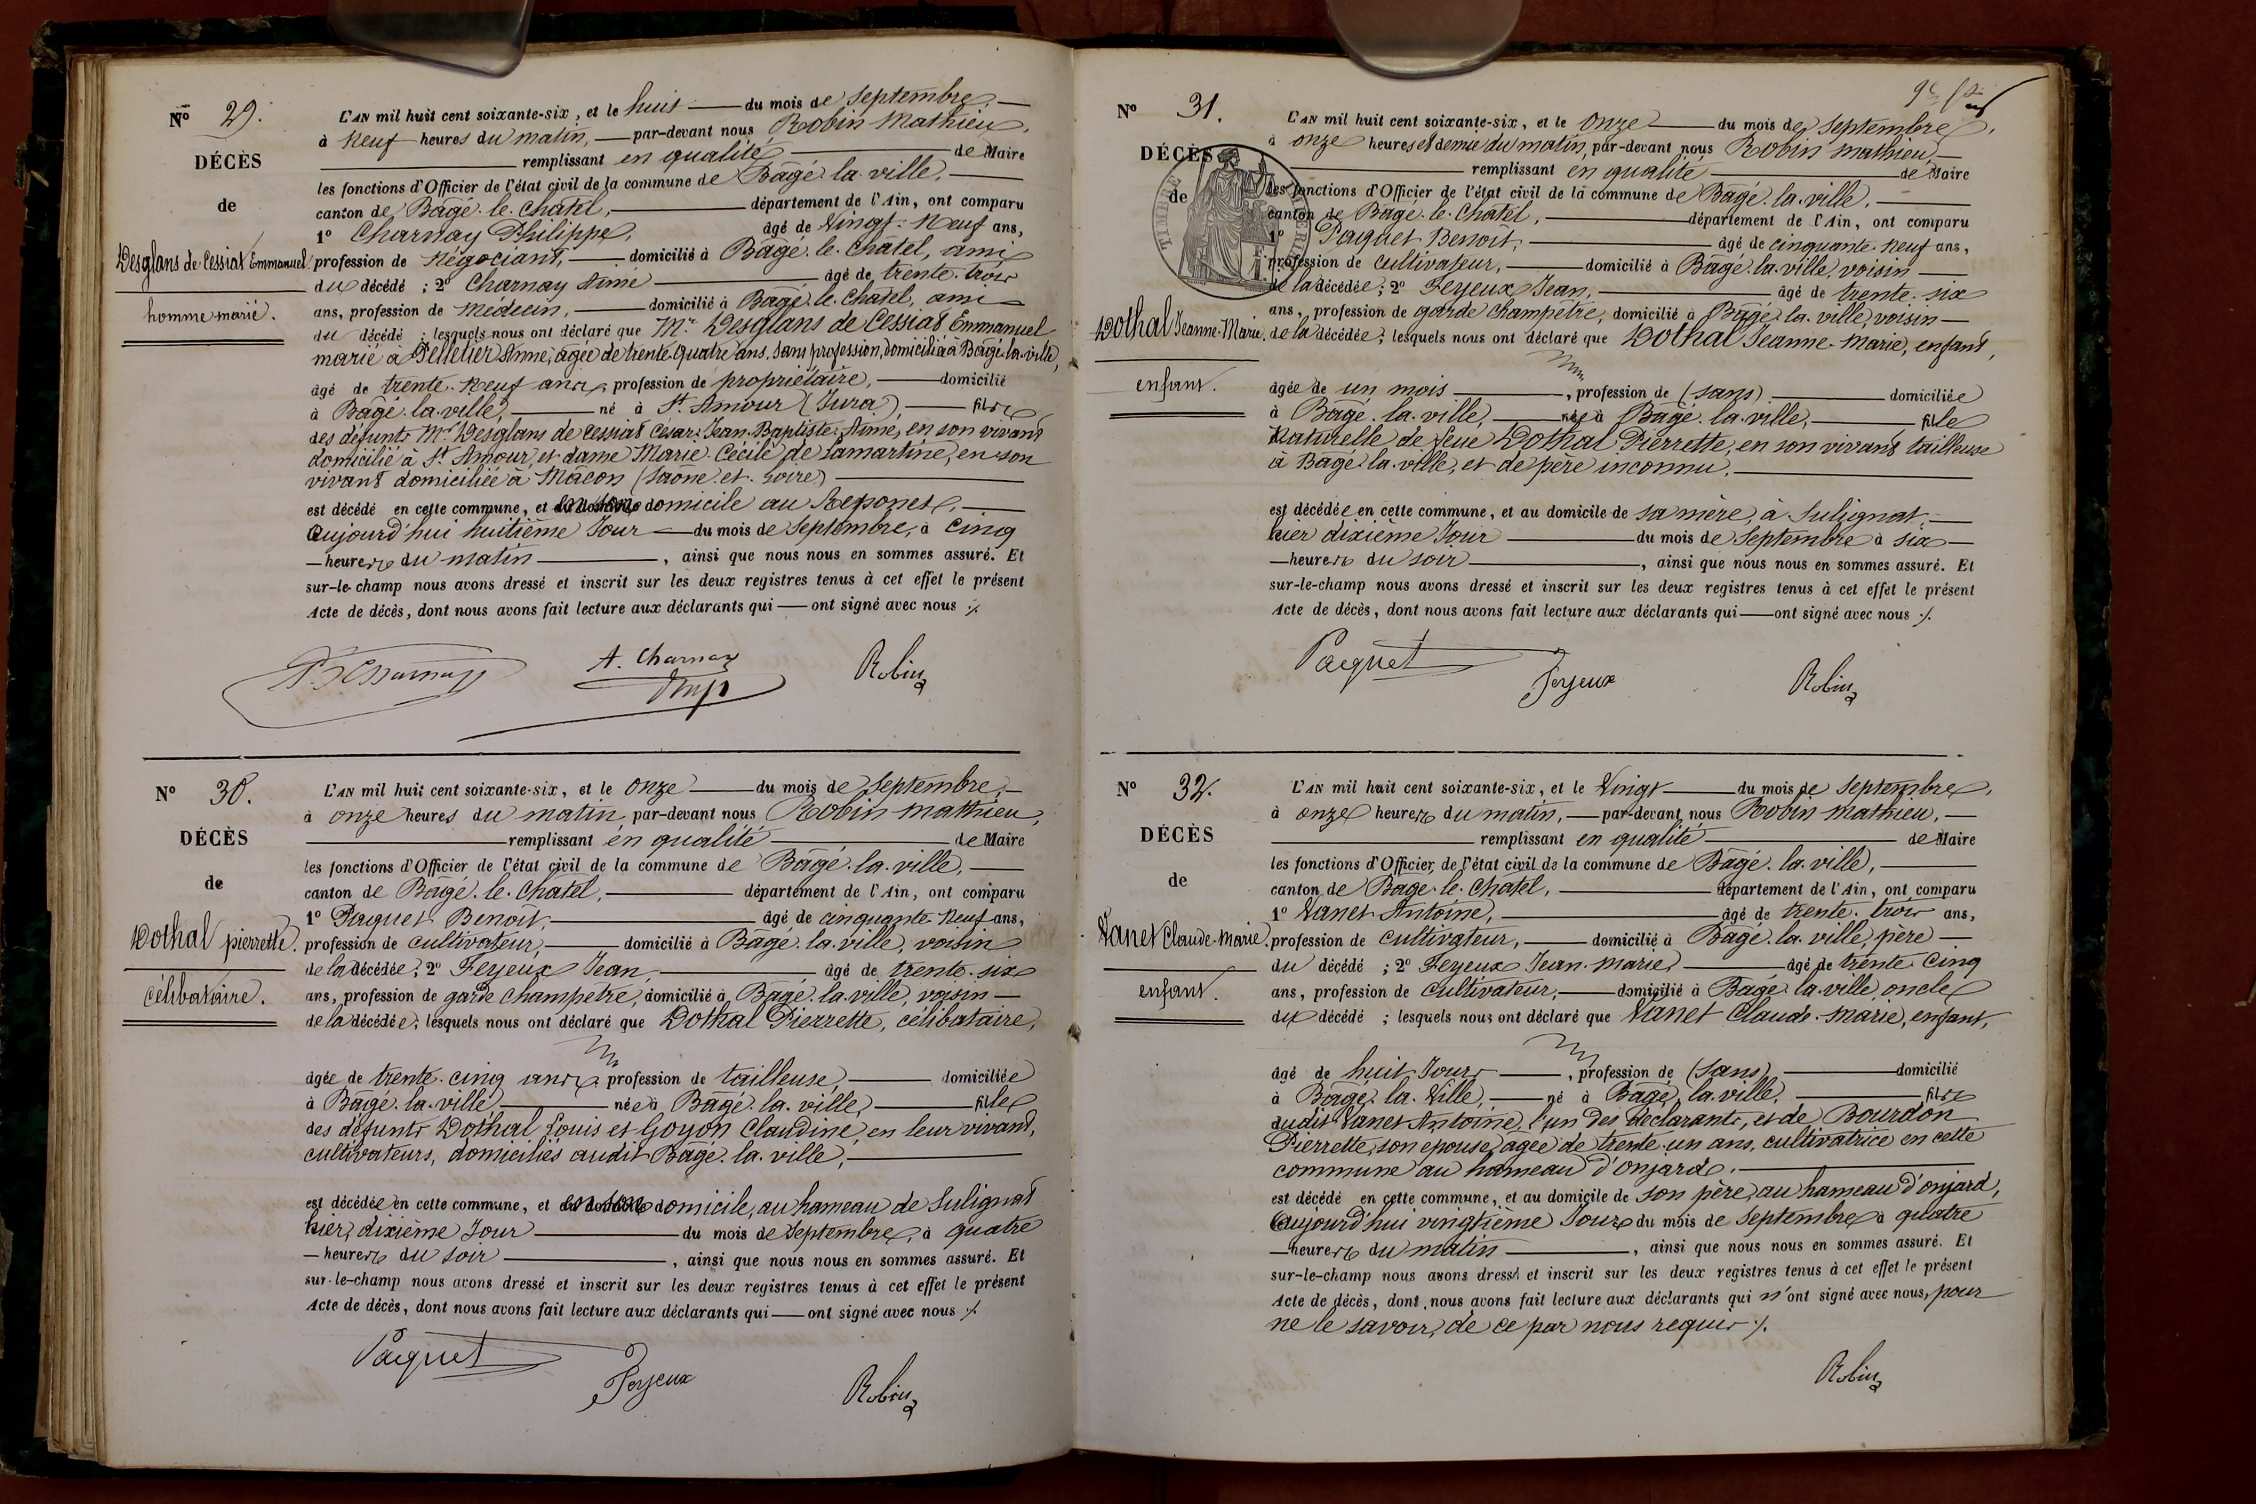 N° 29.
DÉCÈS
de
Desglans de Cessiat Emmanuel
homme marié.
L'AN mil huit cent soixante-six, et le huit du mois de Septembre,
à Neuf heures du matin, par-devant nous Robin Mathieu,
remplissant en qualité de Maire
les fonctions d'Officier de l'état civil de la commune de Bâgé-la-ville,
canton de Bâgé-le-Châtel, département de l'Ain, ont comparu
1° Charnay Philippe, âgé de Vingt-Neuf ans,
profession de Négociant, domicilié à Bâgé-le-Châtel, ami
du décédé ; 2° Charnay Aimé âgé de trente-trois
ans, profession de Médecin, domicilié à Bâgé-le-Châtel, ami
du décédé ; lesquels nous ont déclaré que Mr Desglans de Cessiat Emmanuel
marié à Pelletier Anne, âgée de trente-quatre ans, sans profession, domiciliée à Bâgé-la-ville,
âgé de trente-Neuf ans, profession de propriétaire, domicilié
à Bâgé-la-ville, né à St Amour (Jura), fils
des défunts Mr Desglans de Cessiat César-Jean-Baptiste-Aimé, en son vivant
domicilié à St Amour, et dame Marie-Cécile de Lamartine, en son
vivant domiciliée à Mâcon (Saône-et-Loire)
est décédé en cette commune, et en son domicile au
aujourd'hui huitième Jour du mois de Septembre, à Cinq
heures du matin, ainsi que nous nous en sommes assuré. Et
sur-le-champ nous avons dressé et inscrit sur les deux registres tenus à cet effet le présent
Acte de décès, dont nous avons fait lecture aux déclarants qui ont signé avec nous ./.
Ph Charnay A. Charnay Robin
N° 30.
DÉCÈS
de
Dothal pierrette.
célibataire.
L'AN mil huit cent soixante-six, et le onze du mois de Septembre,
à onze heures du matin, par-devant nous Robin Mathieu,
remplissant en qualité de Maire
les fonctions d'Officier de l'état civil de la commune de Bâgé-la-ville,
canton de Bâgé-le-Châtel, département de l'Ain, ont comparu
1° Paquet Benoît, âgé de cinquante-Neuf ans,
profession de cultivateur, domicilié à Bâgé-la-ville, voisin
de la décédée ; 2° Feyeux Jean, âgé de trente-six
ans, profession de garde champêtre, domicilié à Bâgé-la-ville, voisin
de la décédée ; lesquels nous ont déclaré que Dothal Pierrette, célibataire,
âgée de trente-cinq ans, profession de tailleuse, domiciliée
à Bâgé-la-ville, née à Bâgé-la-ville, fille
des défunts Dothal Louis et Goyon Claudine, en leur vivant,
cultivateurs, domiciliés audit Bâgé-la-ville,
est décédée en cette commune, et en son domicile, au hameau de Sulignat
hier, dixième Jour du mois de Septembre, à quatre
heures du soir, ainsi que nous nous en sommes assuré. Et
sur-le-champ nous avons dressé et inscrit sur les deux registres tenus à cet effet le présent
Acte de décès, dont nous avons fait lecture aux déclarants qui ont signé avec nous ./.
Paquet Feyeux Robin
N° 31.
DÉCÈS
de
TIMBRE
Dothal Jeanne-Marie.
enfant.
L'AN mil huit cent soixante-six, et le onze du mois de Septembre,
à onze heures et demie du matin, par-devant nous Robin Mathieu,
remplissant en qualité de Maire
les fonctions d'Officier de l'état civil de la commune de Bâgé-la-ville,
canton de Bâgé-le-Châtel, département de l'Ain, ont comparu
1° Paquet Benoît, âgé de cinquante-Neuf ans,
profession de cultivateur, domicilié à Bâgé-la-ville, voisin
de la décédée ; 2° Feyeux Jean, âgé de trente-six
ans, profession de garde champêtre, domicilié à Bâgé-la-ville, voisin
de la décédée ; lesquels nous ont déclaré que Dothal Jeanne-Marie, enfant,
âgée de un mois, profession de (sans), domiciliée
à Bâgé-la-ville, née à Bâgé-la-ville, fille
Naturelle de feue Dothal Pierrette, en son vivant tailleuse
à Bâgé-la-ville, et de père inconnu,
est décédée en cette commune, et au domicile de sa mère, à Sulignat,
hier dixième Jour du mois de Septembre à six
heures du soir, ainsi que nous nous en sommes assuré. Et
sur-le-champ nous avons dressé et inscrit sur les deux registres tenus à cet effet le présent
Acte de décès, dont nous avons fait lecture aux déclarants qui ont signé avec nous ./.
Paquet Feyeux Robin
N° 32.
DÉCÈS
de
Vanet Claude-Marie.
enfant.
L'AN mil huit cent soixante-six, et le Vingt du mois de Septembre,
à onze heures du matin, par-devant nous Robin Mathieu,
remplissant en qualité de Maire
les fonctions d'Officier de l'état civil de la commune de Bâgé-la-ville,
canton de Bâgé-le-Châtel, département de l'Ain, ont comparu
1° Vanet Antoine, âgé de trente-trois ans,
profession de cultivateur, domicilié à Bâgé-la-ville, père
du décédé ; 2° Feyeux Jean-Marie, âgé de trente-cinq
ans, profession de cultivateur, domicilié à Bâgé-la-ville, oncle
du décédé ; lesquels nous ont déclaré que Vanet Claude-Marie, enfant,
âgé de huit Jours, profession de (sans), domicilié
à Bâgé-la-Ville, né à Bâgé-la-ville, fils
dudit Vanet Antoine, l'un des déclarants, et de Bourdon
Pierrette, son épouse, âgée de trente-un ans, cultivatrice en cette
commune au hameau d'onjard,
est décédé en cette commune, et au domicile de son père, au hameau d'onjard,
aujourd'hui vingtième Jour du mois de Septembre à quatre
heures du matin, ainsi que nous nous en sommes assuré. Et
sur-le-champ nous avons dressé et inscrit sur les deux registres tenus à cet effet le présent
Acte de décès, dont nous avons fait lecture aux déclarants qui n'ont signé avec nous, pour
ne le savoir, de ce par nous requis ./.
Robin